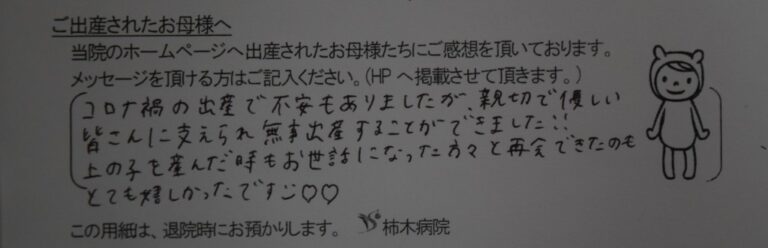 ご出産されたお母様へ
当院のホームページへ出産されたお母様たちにご感想を頂いております。
メッセージを頂ける方はご記入ください。(HPへ掲載させて頂きます。)
コロナ禍の出産で不安もありましたが、親切で優しい
皆さんに支えられ無事出産することができました!!
上の子を産んだ時もお世話になった方々と再会できたのも
とても嬉しかったです♡♡
この用紙は、退院時にお預かりします。 柿木病院